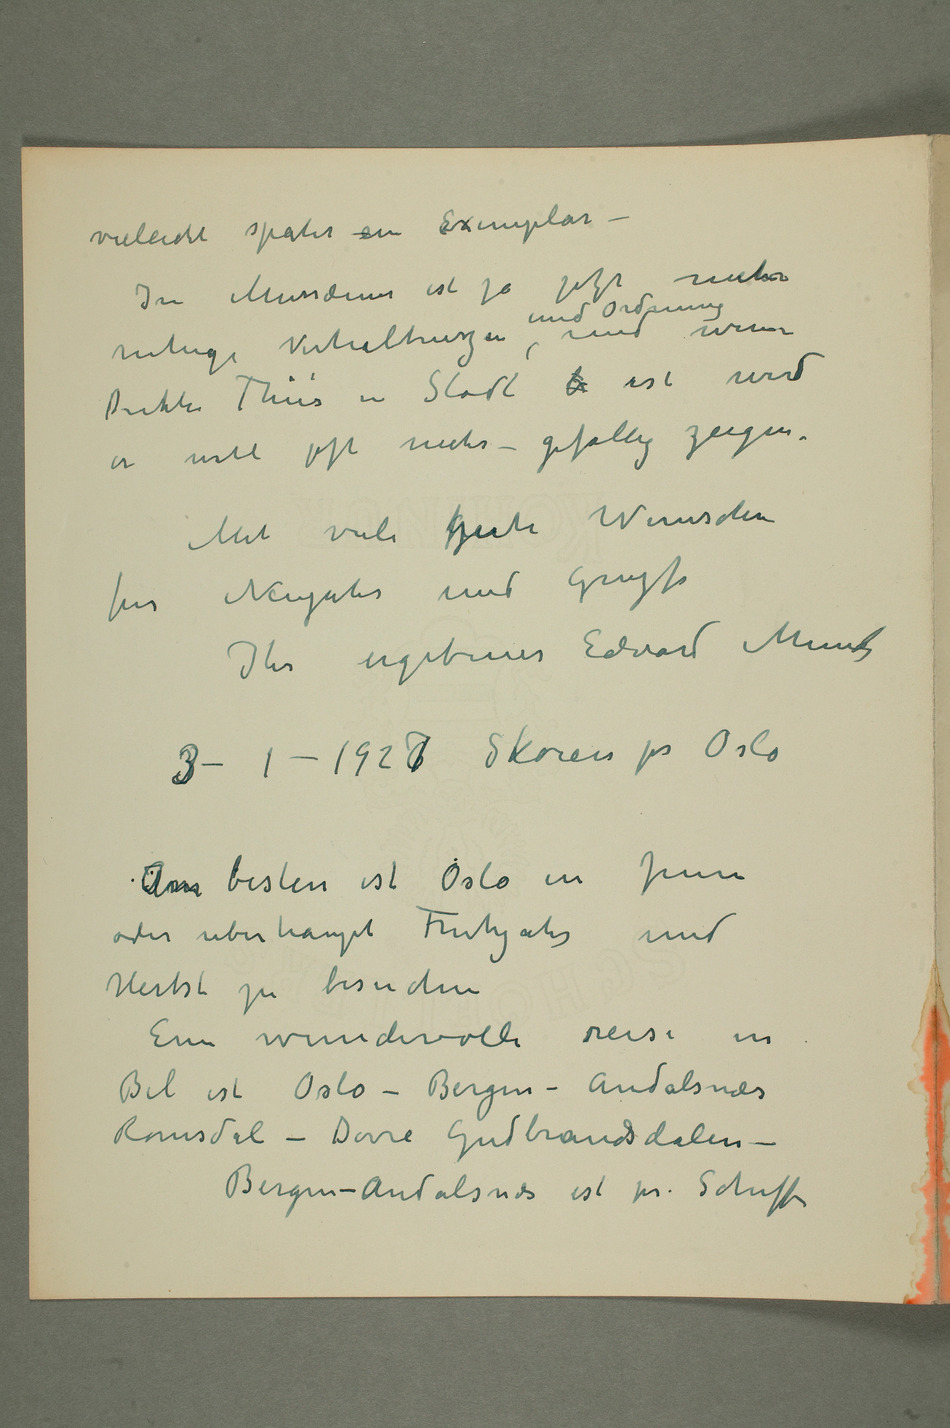 vielleicht später ein Exemplar –
Im Musæum ist ja jetzt mehr
und Ordnung
ruhige Verhaltnisze, und wenn
Direktor Thiis in Stadt ist wird
er wohl oft mehr – gefallig zeigen.
Mit viele gute Wünschen
für Neujahr und Gruss
Ihr ergebener Edvard Munch
3 – 1 – 1927 Skøien pr Oslo
Am besten ist Oslo in Juni
oder uberhaupt Fruhjahr und
Herbst zu besuchen
Eine wundervolle reise in
Bil ist Oslo – Bergen – Andalsnæs
Romsdal – Dovre Gudbrandsdalen –
Bergen – Andalsnæs ist pr. Schiff